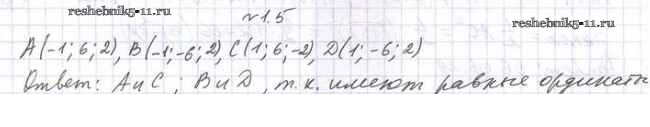 reshebnik5-11.ru
№1.5
A(-1; 6; 2), B(-1; -6; 2), C(1; 6; -2), D(1; -6; 2)
Ответ: A и C ; B и D , т.к. имеют равные ординаты
reshebnik5-11.ru